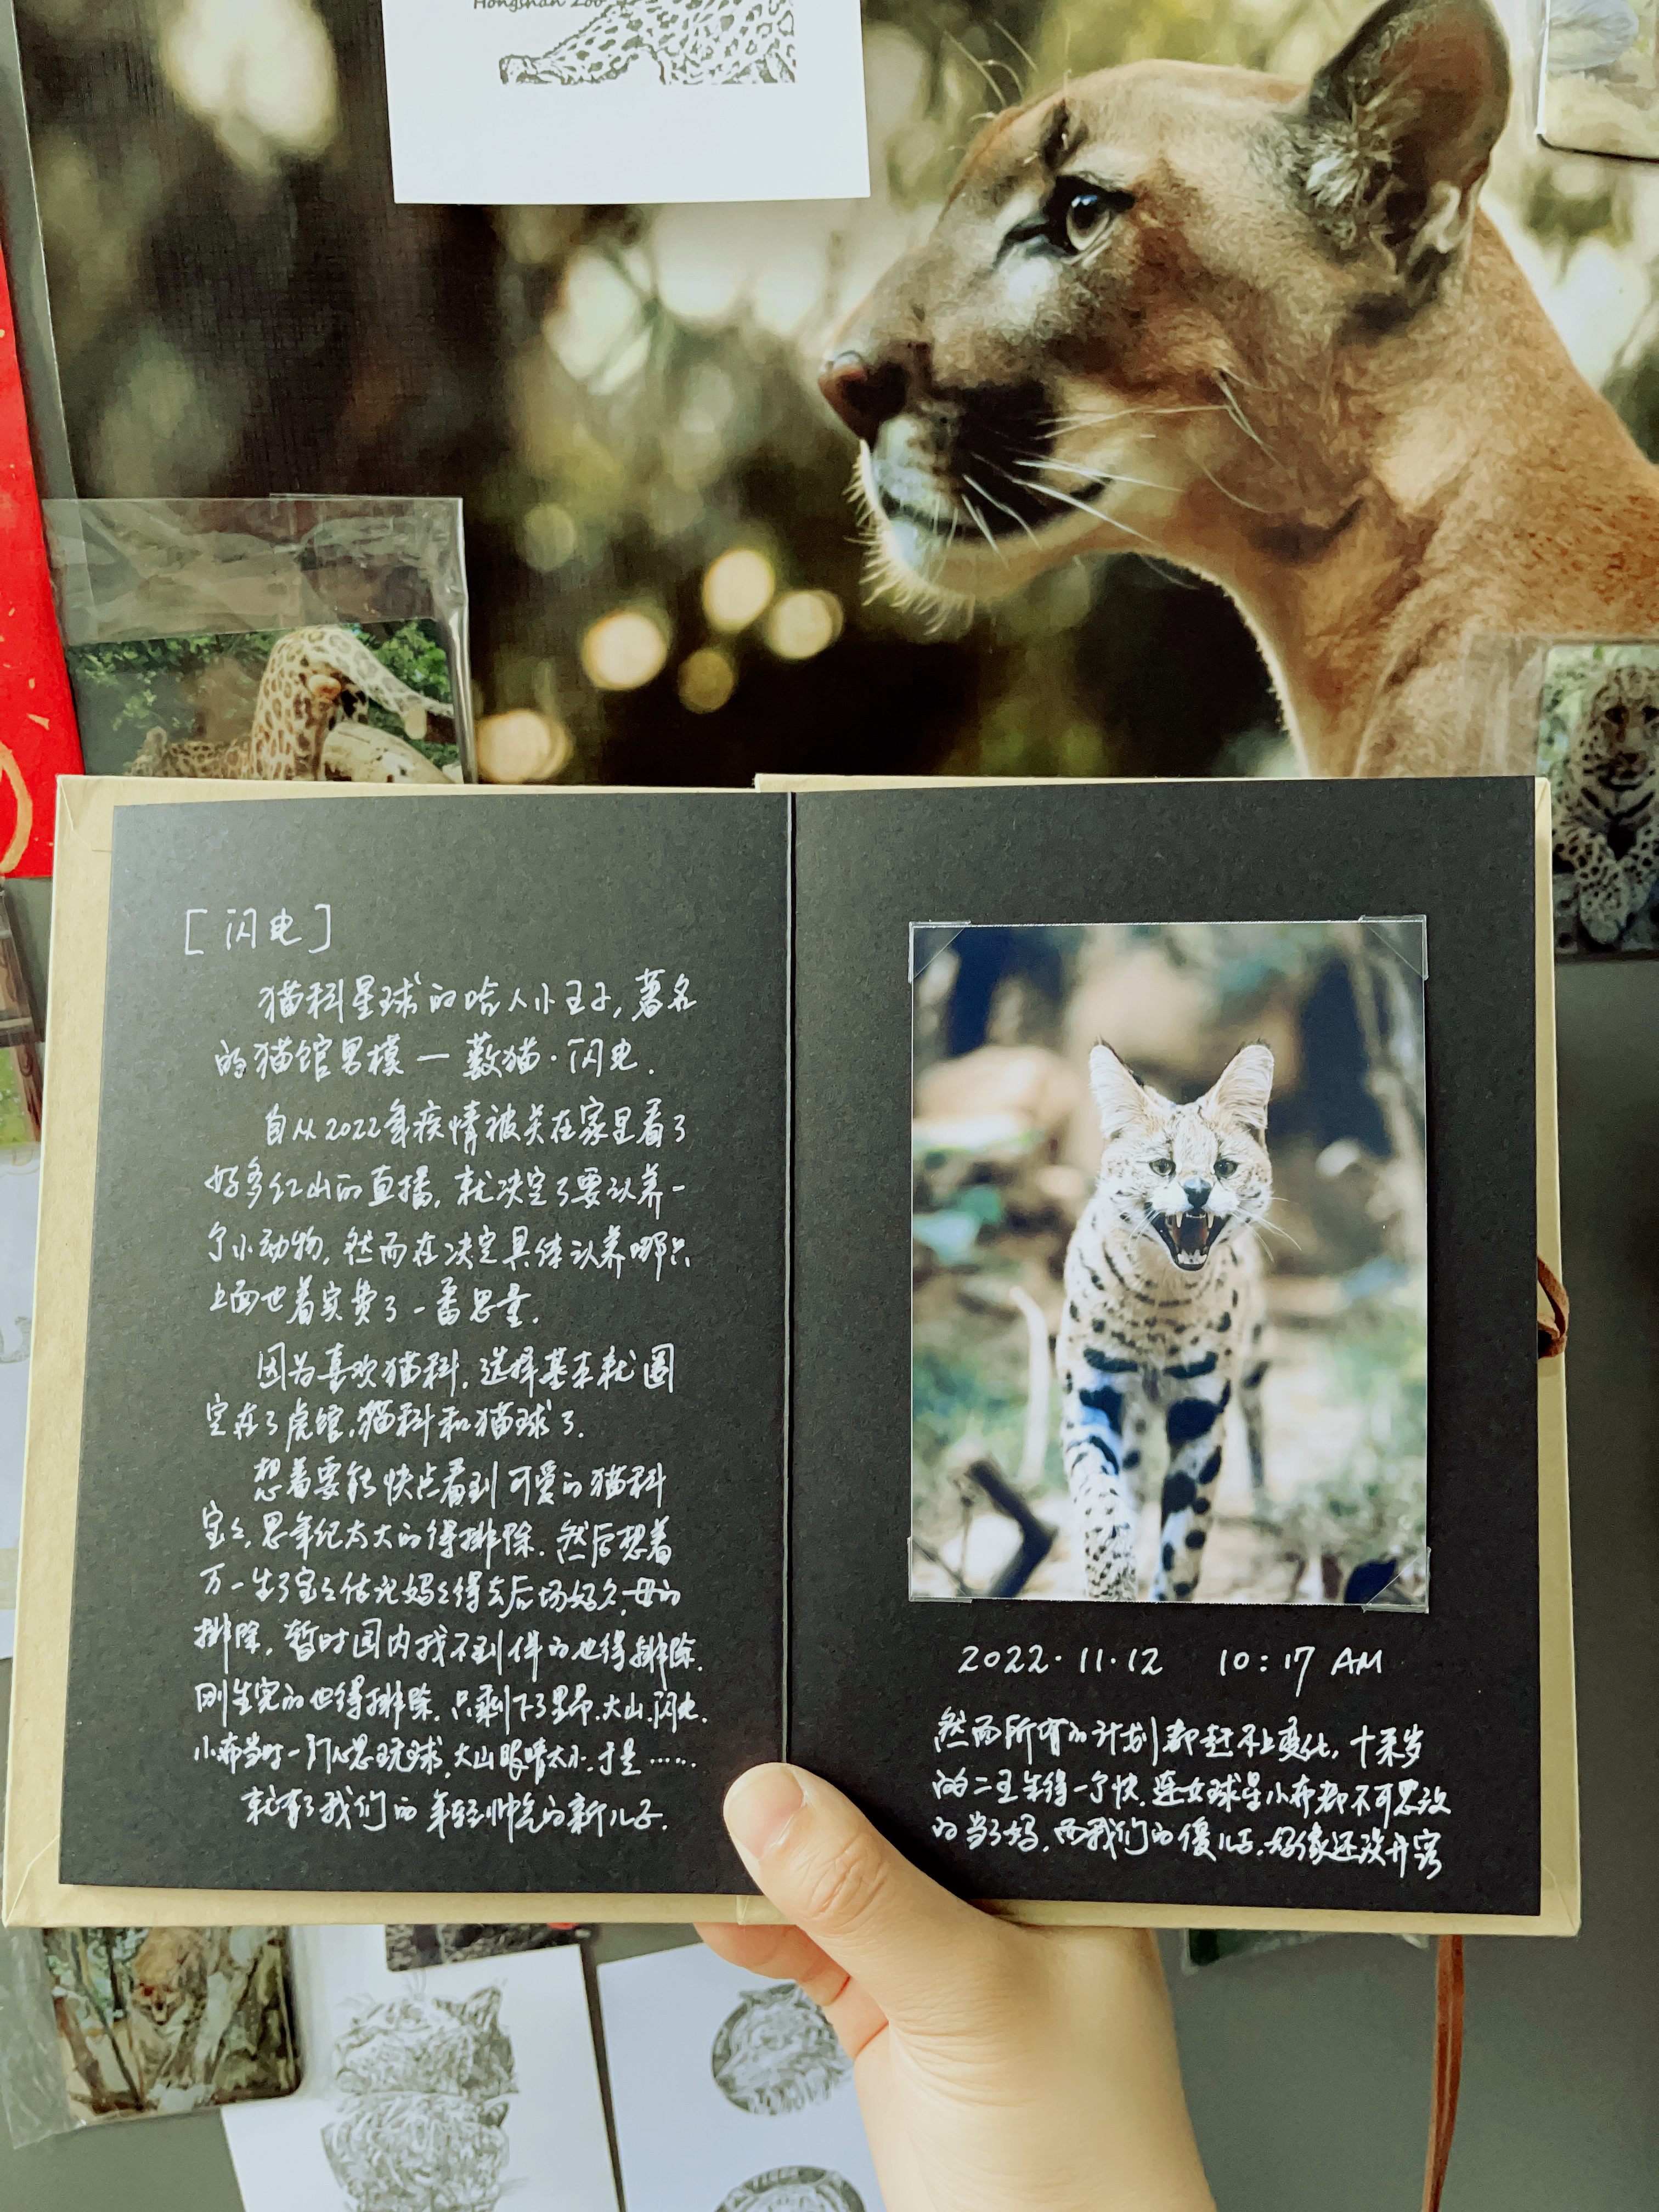 Hongshan Zoo
[闪电]
猫科星球的哈人小王子,著名
的猫馆男模—薮猫·闪电.
自从2022年疫情被关在家里看了
好多红山的直播,就决定了要认养一
个小动物,然而在决定具体认养哪只
上面也着实费了一番思量.
因为喜欢猫科,选择基本就圈
定在了虎馆,猫科和猫球了.
想着要能快点看到可爱的猫科
宝宝,思年纪太大的得排除.然后想着
万一生了宝宝估记妈妈得去后场好久,母的
排除,暂时国内找不到伴的也得排除.
刚生完的也得排除.只剩下了野昂.大山.闪电.
小布当时一门心思玩球,大山眼睛太小.于是……
就有了我们的年轻帅气的新儿子.
2022·11·12 10:17 AM
然而所有的计划都赶不上变化,十来岁
的二王生得一个快.连女球星小布都不可思议
的当了妈,而我们的傻儿子,好像还没开窍